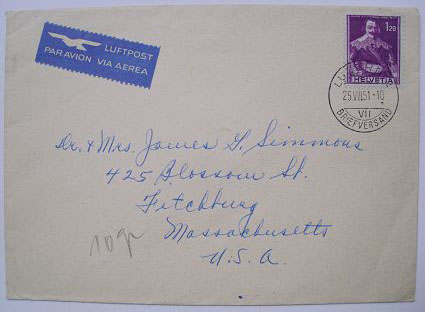 LUFTPOST
PAR AVION VIA AEREA
1.20
HELVETIA
25.VII.51-10
VII
BRIEFVERSAND
Dr. & Mrs. James G. Simmons
425 Blossom St.
Fitchburg
Massachusetts
U.S.A.
10 gr